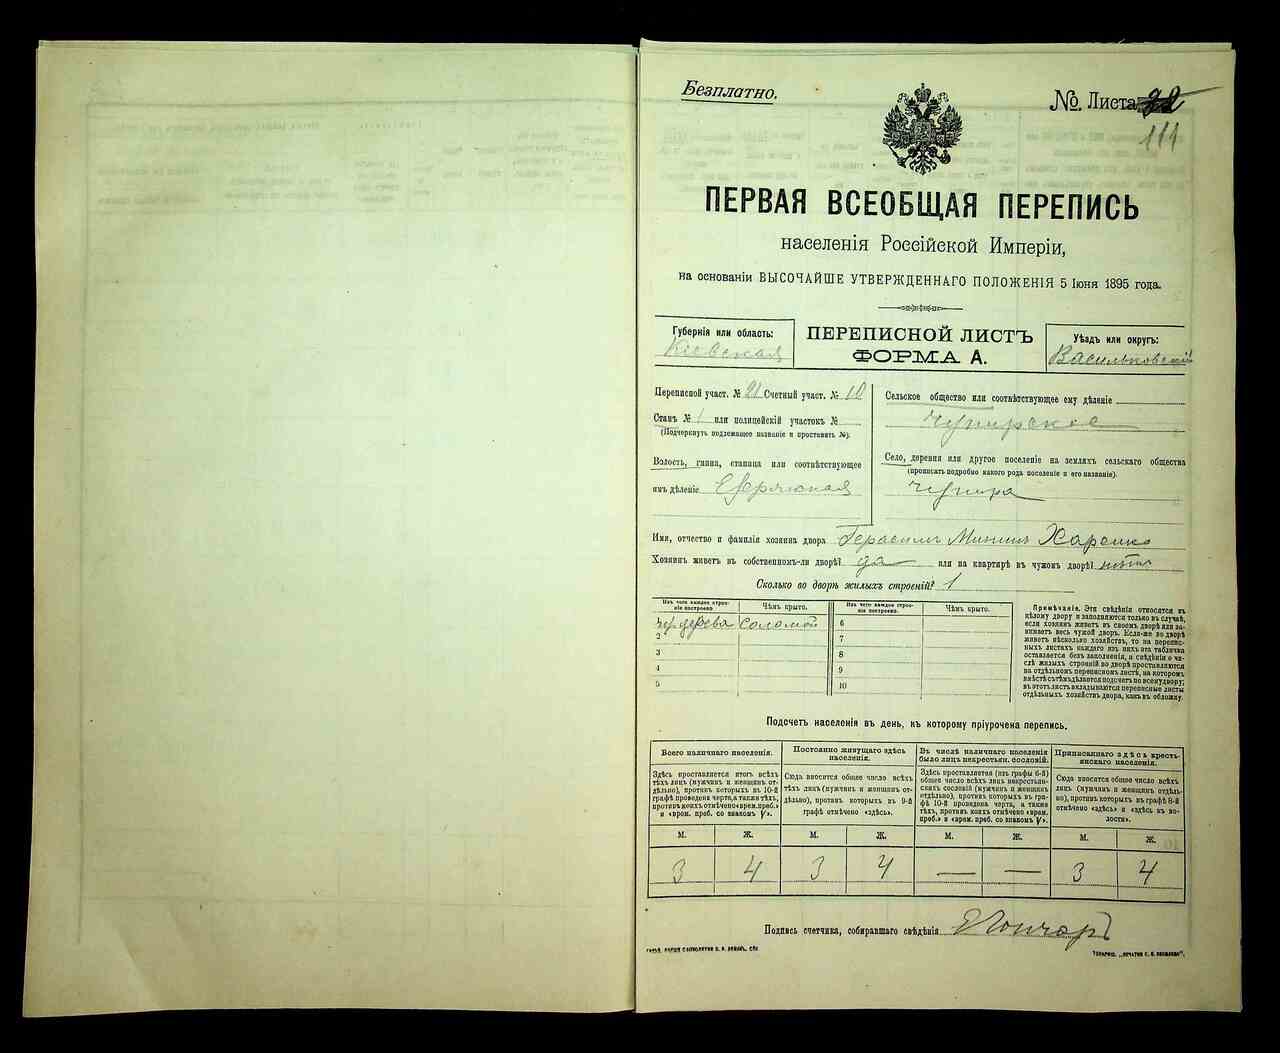 Безплатно.
№ Листа 22
111
ПЕРВАЯ ВСЕОБЩАЯ ПЕРЕПИСЬ
населенія Россійской Имперіи,
на основаніи ВЫСОЧАЙШЕ УТВЕРЖДЕННАГО ПОЛОЖЕНІЯ 5 Іюня 1895 года.
Губернія или область:
Кіевская
ПЕРЕПИСНОЙ ЛИСТЪ
ФОРМА А.
Уѣздъ или округъ:
Васильковскій
Переписной участ. № 21 Счетный участ. № 10
Станъ № 1 или полицейскій участокъ №
(Подчеркнуть подлежащее названіе и проставить №).
Волость, гмина, станица или соотвѣтствующее
имъ дѣленіе
Сельское общество или соотвѣтствующее ему дѣленіе
Чупирское
Село, деревня или другое поселеніе на земляхъ сельскаго общества
(прописать подробно какого рода поселеніе и его названіе).
Чупира
Имя, отчество и фамилія хозяина двора Герасимъ Мининъ Харенко
Хозяинъ живетъ въ собственномъ-ли дворѣ? да или на квартирѣ въ чужомъ дворѣ? нѣтъ
Сколько во дворѣ жилыхъ строеній? 1
Изъ чего каждое строеніе построено.
Чѣмъ крыто.
Изъ чего каждое строеніе построено.
Чѣмъ крыто.
дерева соломой
6
2
7
3
8
4
9
5
10
Примѣчаніе. Эти свѣдѣнія относятся къ
цѣлому двору и заполняются только въ случаѣ,
если хозяинъ живетъ въ своемъ дворѣ или занимаетъ
весь чужой дворъ. Если-же во дворѣ
живетъ нѣсколько хозяйствъ, то на переписныхъ
листахъ каждаго изъ нихъ эта табличка
оставляется безъ заполненія, а свѣдѣнія о числѣ
жилыхъ строеній во дворѣ проставляются
на отдѣльномъ переписномъ листѣ, на которомъ
вмѣстѣ съ тѣмъ дѣлается подсчетъ по всему двору;
въ этотъ листъ вкладываются переписные листы
отдѣльныхъ хозяйствъ двора, какъ въ обложку.
Подсчетъ населенія въ день, къ которому пріурочена перепись.
Всего наличнаго населенія.
Здѣсь проставляется итогъ всѣхъ
тѣхъ лицъ (мужчинъ и женщинъ отдѣльно),
противъ которыхъ въ 10-й
графѣ проведена черта, а также тѣхъ,
противъ коихъ отмѣчено «врем. преб.»
и «врем. преб. со знакомъ V».
Постоянно живущаго здѣсь
населенія.
Сюда вносится общее число всѣхъ
тѣхъ лицъ (мужчинъ и женщинъ отдѣльно),
противъ которыхъ въ 9-й
графѣ отмѣчено «здѣсь».
Въ числѣ наличнаго населенія
было лицъ некрестьян. сословій.
Здѣсь проставляется (изъ графы 6-й)
общее число всѣхъ лицъ некрестьянскихъ
сословій (мужчинъ и женщинъ
отдѣльно), противъ которыхъ въ графѣ
10-й проведена черта, а также
тѣхъ, противъ коихъ отмѣчено «врем.
преб.» и «врем. преб. со знакомъ V».
Приписаннаго здѣсь крестьянскаго
населенія.
Сюда вносится общее число всѣхъ
лицъ (мужчинъ и женщинъ отдѣльно),
противъ которыхъ въ графѣ 8-й
отмѣчено «здѣсь» и «здѣсь въ волости».
М. Ж. М. Ж. М. Ж. М. Ж.
3 4 3 4 — — 3 4
Подпись счетчика, собиравшаго свѣдѣнія Гончаръ